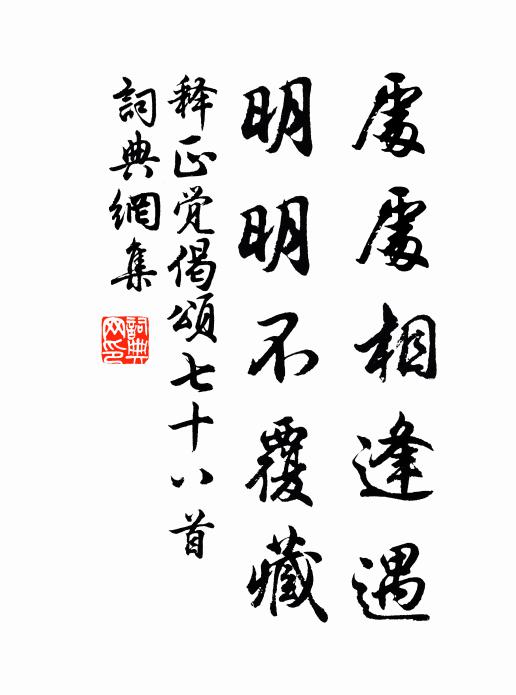 處處相逢遇
明明不覆藏
释正觉偈頌七十八首
詞典網集
詞典网印